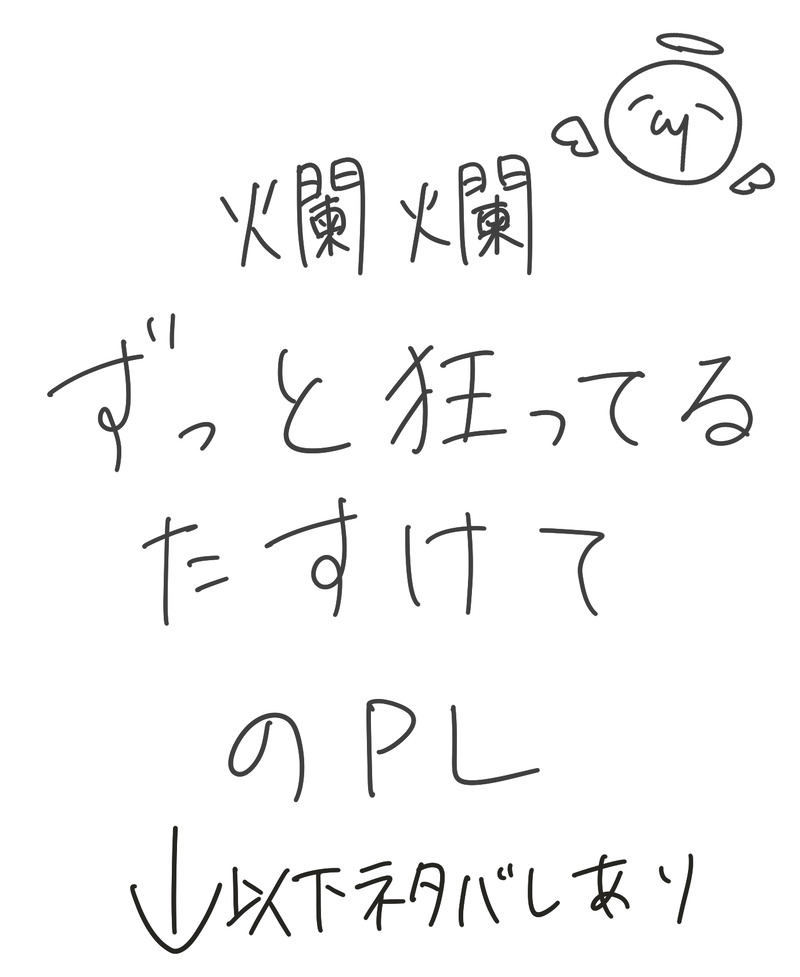 爛爛
ずっと狂ってる
たすけて
のPL
↓以下ネタバレあり